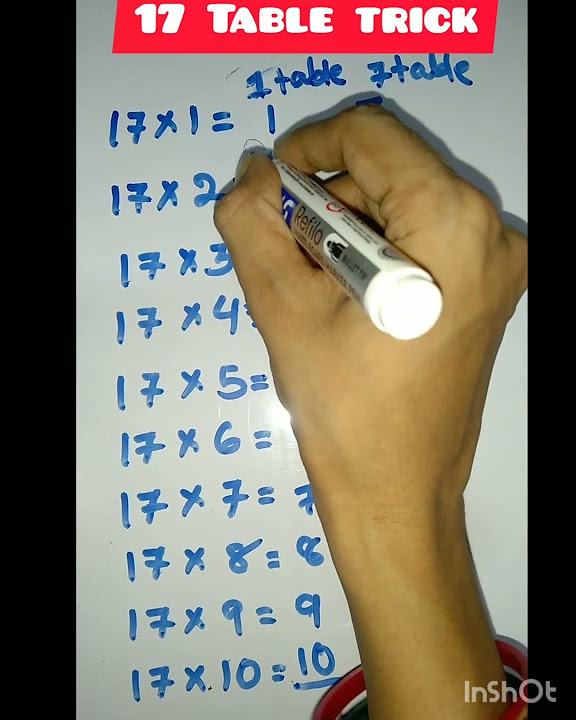 17 TABLE TRICK
1 table 7 table
17 × 1 = 1
17 × 2
17 × 3
17 × 4
17 × 5 =
17 × 6 =
17 × 7 = 7
17 × 8 = 8
17 × 9 = 9
17 × 10 = 10
Refilo
BULLET TIP
InShOt